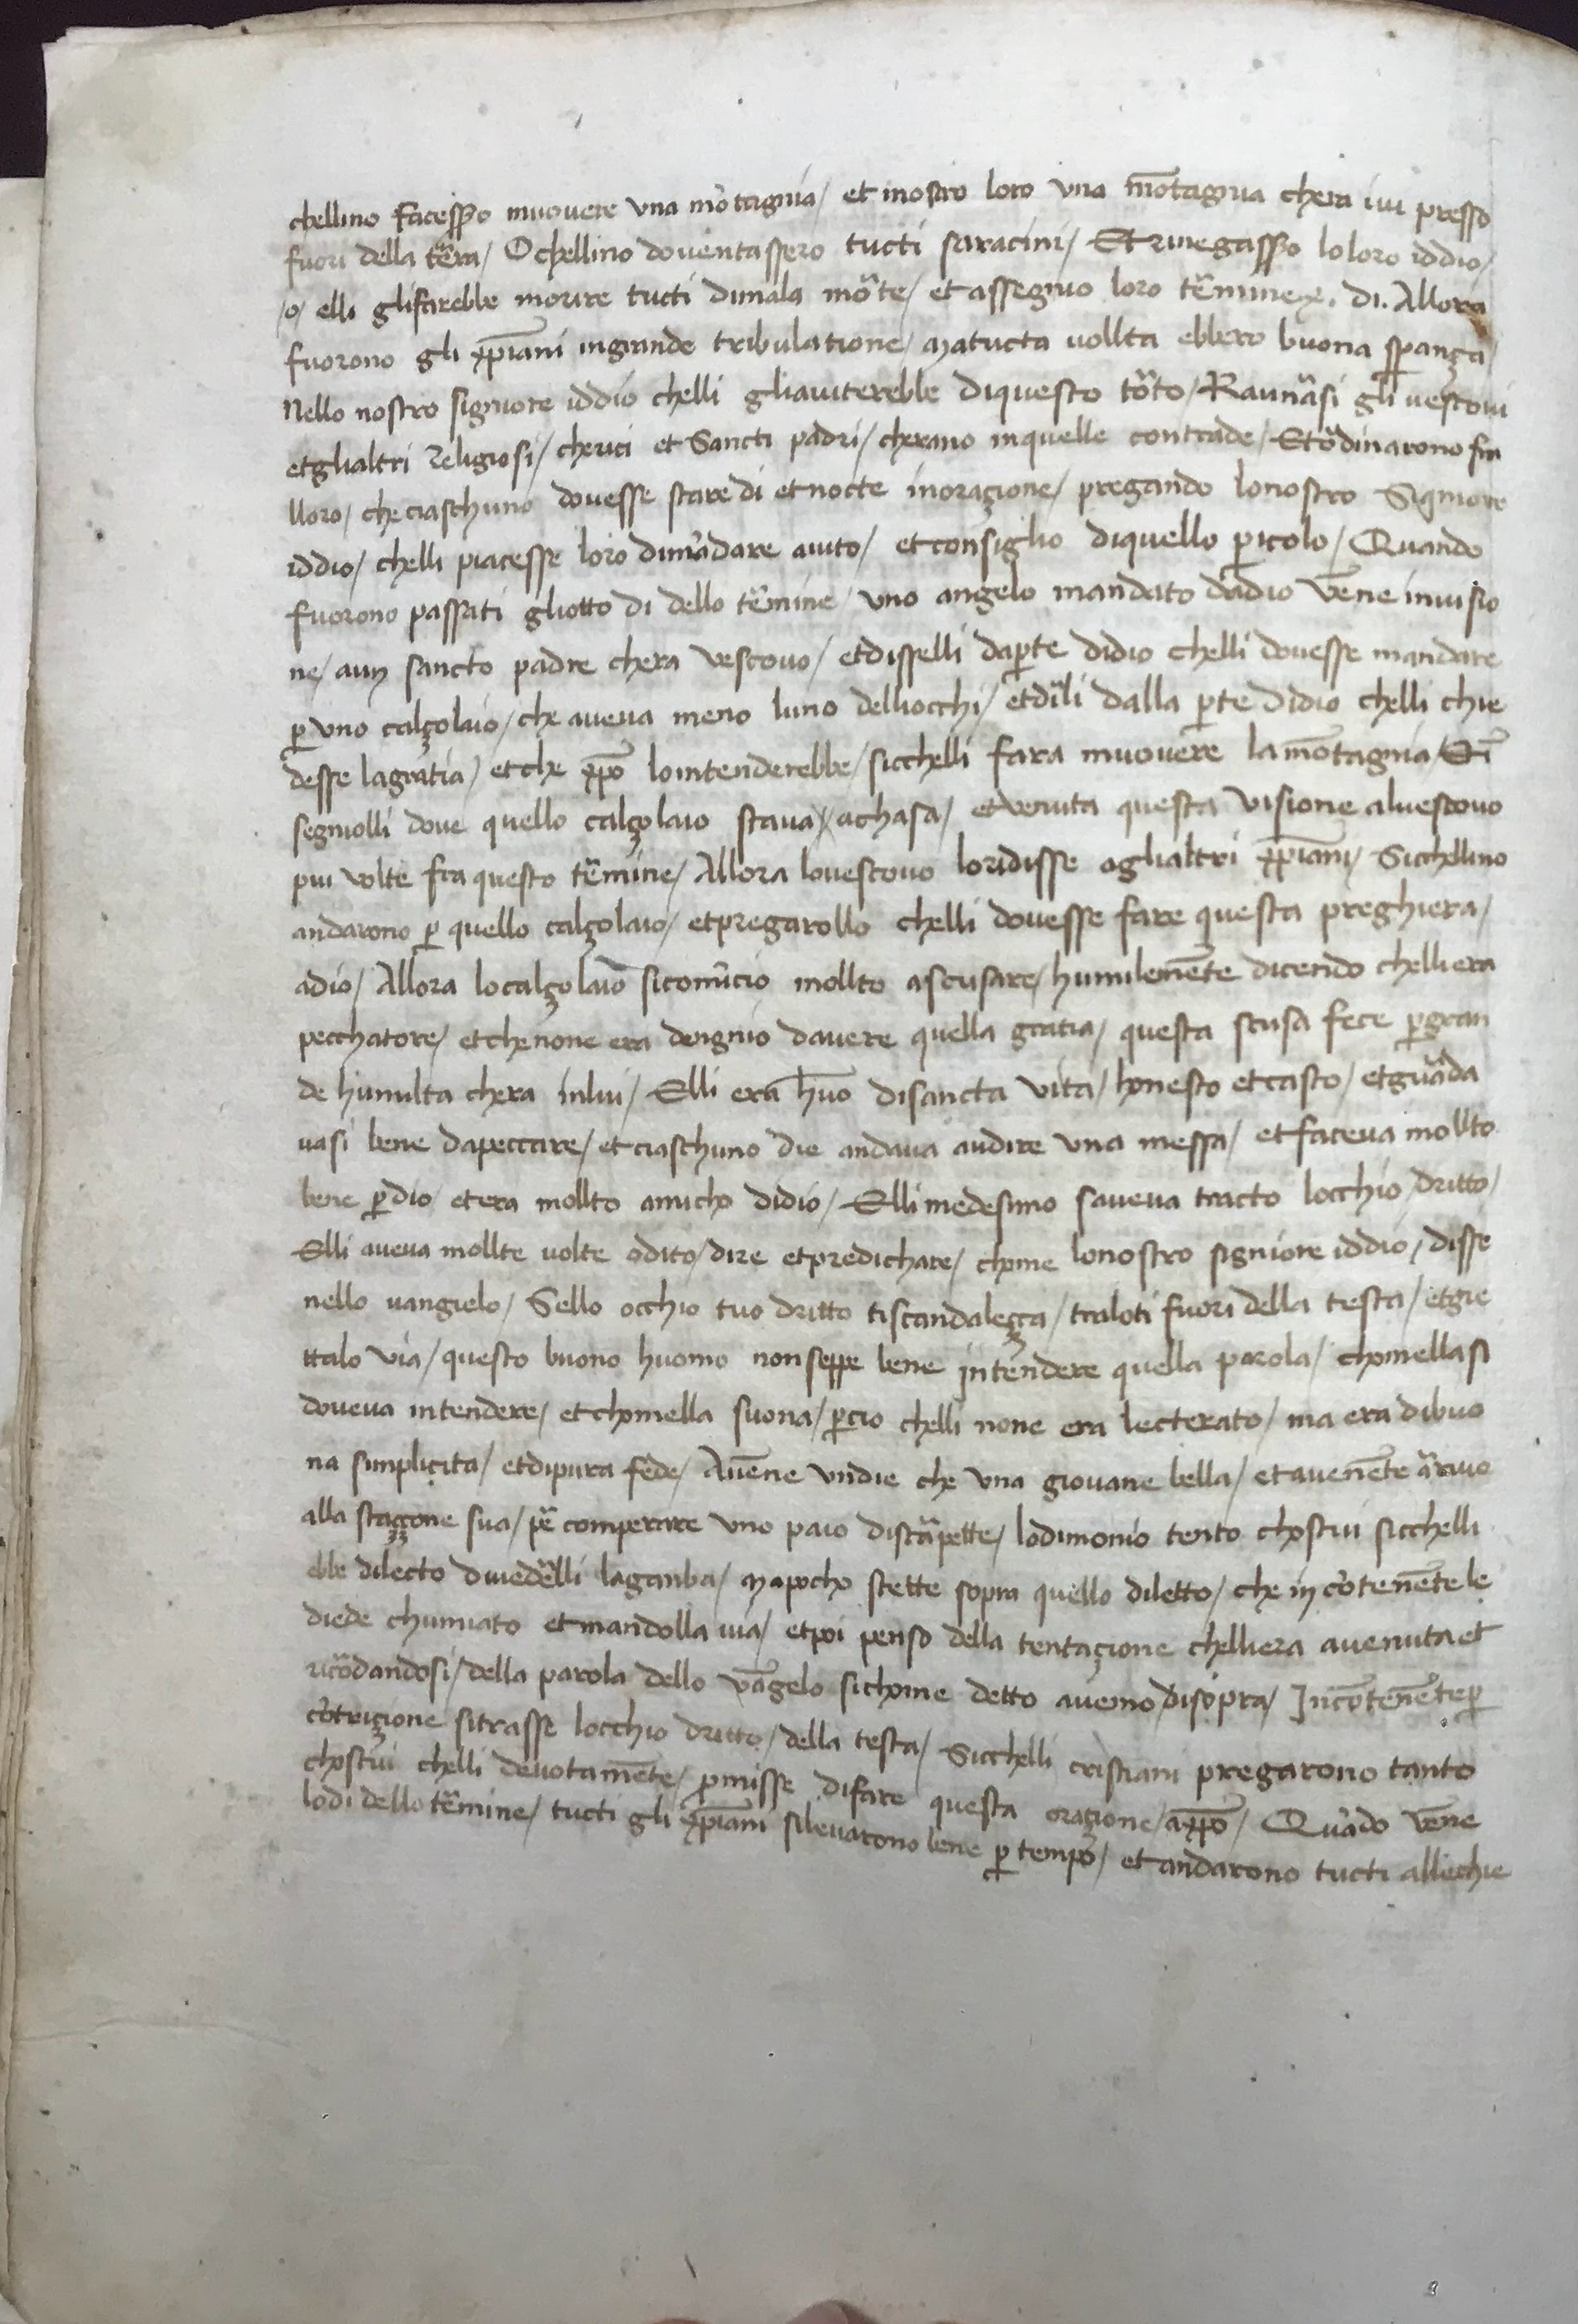 chellino facessero muovere una mõtagnia / et mostro loro una mõtagnia chera iui presso
fuori della têra / O chellino doventassero tucti saracini / Et rinegassero loloro iddio /
/o/ elli glifarebbe morire tucti dimala môte / et assegnio loro têmine .x. di. Allora
fuorono gli xp̃iani ingrande tribulatione / Matucta vollta ebbero buona sperança /
Nello nostro signiore iddio chelli gliaiuterebbe diquesto tôto / Raunâsi gli uescoui
etglialtri religiosi / cherici et Sancti padri / cherano inquelle contrade / Etôdinarono fra
lloro / che ciaschuno dovesse stare di et nocte inoraçione / pregando lonostro Signiore
iddio / chelli piacesse loro dimãdare aiuto / et consiglio diquello p̱icolo / Quando
fuorono passati gliotto di dello têmine / uno angelo mandato dadio vẽne inuisio
ne / aun sancto padre chera vescouo / etdisselli dap̱te didio chelli douesse mandare
p̱ uno calçolaio / che aueva meno luno delliocchi / etdîli dalla p̱te didio chelli chie
desse lagratia / etche xp̃o lointenderebbe / sicchelli fara muovere lamõtagnia / Et ĩ
segniolli dove quello calçolaio staua / achasa / et venuta questa visione aluescouo
piu volte fra questo têmine / Allora louescouo loridisse aglialtri xp̃iani / Sicchellino
andarono p̱ quello calçolaio / etpregarollo chelli dovesse fare questa preghiera /
adio / Allora localçolaio sicomĩcio mollto ascusare / humilemẽte dicendo chelliera
pecchatore / etchenone era dengnio davere quella gratia / questa scusa fece p̱gran
de humilta chera inlui / Elli era huõ disancta vita / honesto etcasto / etguâda
uasi bene dapeccare / et ciaschuno die andava audire una messa / et faceva mollto
bene p̱dio / et era mollto amicho didio / Elli medesimo saveva tracto locchio dritto /
Elli aveva mollte volte odito / dire etpredichare / chome lonostro signiore iddio / disse
nello uangielo / Sello occhio tuo dritto tiscandaleçça / traloti fuori della testa / etgie
ttalo via / questo buono huomo nonseppe bene intendere quella parola / chomellasi
doveva intendere / etchomella suona / p̱cio chelli none era lecterato / ma era dibuo
na simplicita / etdipura fede / Avẽne undie che una giovane bella / et avenẽte âriuo
alla staççone sua / pê comperare uno paio discâpette / lodimonio tento chostui sicchelli
ebbe dilecto divedêlli laganba / Mapocho stette sopra quello diletto / che in cõtenẽte le
diede chumiato et mandolla uia / etpoi penso della tentaçione chelliera auenuta et
ricôdandosi / della parola dello vãgelo sichome detto avemo disopra / Incõtenẽte p̱
cõtriçione sitrasse locchio dritto / della testa / Sicchelli cristiani pregarono tanto
chostui chelli devotamẽte / p̱misse difare questa oraçione / axp̃o / Quãdo vẽne
lodi dello têmine / tucti gli xp̃iani silevarono bene p̱ tempo / et andarono tucti allechie